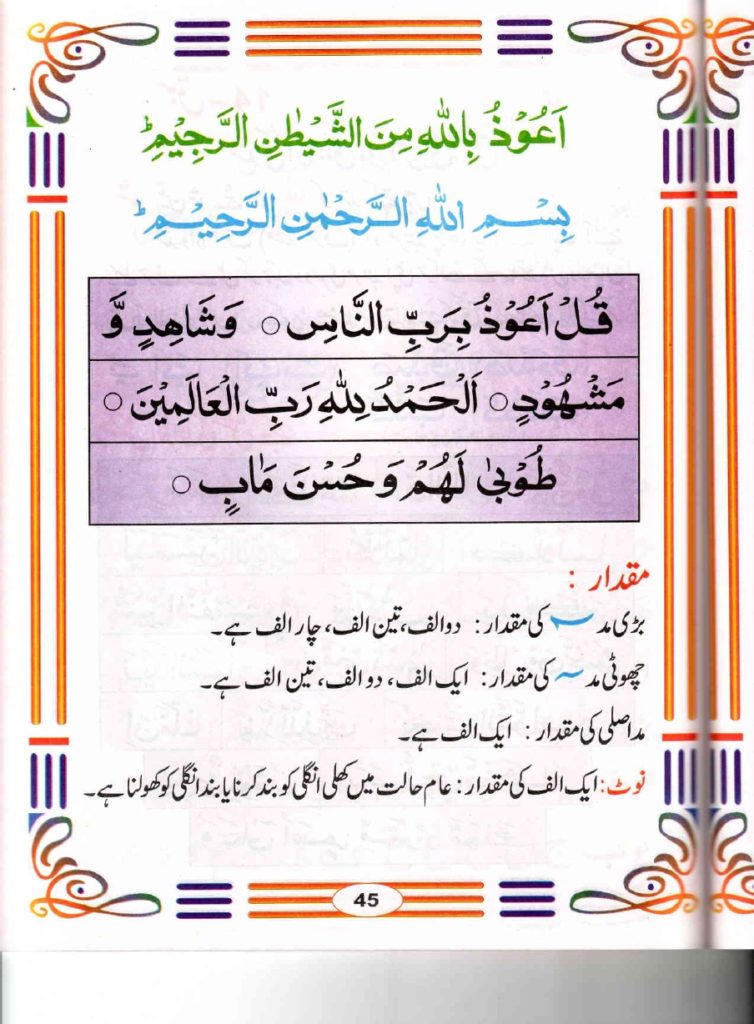 اَعُوْذُ بِاللهِ مِنَ الشَّيْطٰنِ الرَّجِيْمِ ؕ
بِسْمِ اللهِ الرَّحْمٰنِ الرَّحِيْمِ ؕ
قُلْ اَعُوْذُ بِرَبِّ النَّاسِ ○ وَشَاهِدٍ وَّ
مَشْهُوْدٍ ○ اَلْحَمْدُ لِلّٰهِ رَبِّ الْعَالَمِيْنَ ○
طُوْبٰى لَهُمْ وَ حُسْنَ مَاٰبٍ ○
مقدار :
بڑی مد ٓ کی مقدار : دو الف، تین الف، چار الف ہے۔
چھوٹی مد ~ کی مقدار : ایک الف، دو الف، تین الف ہے۔
مد اصلی کی مقدار : ایک الف ہے۔
نوٹ: ایک الف کی مقدار : عام حالت میں کھلی انگلی کو بند کرنا یا بند انگلی کو کھولنا ہے۔
45